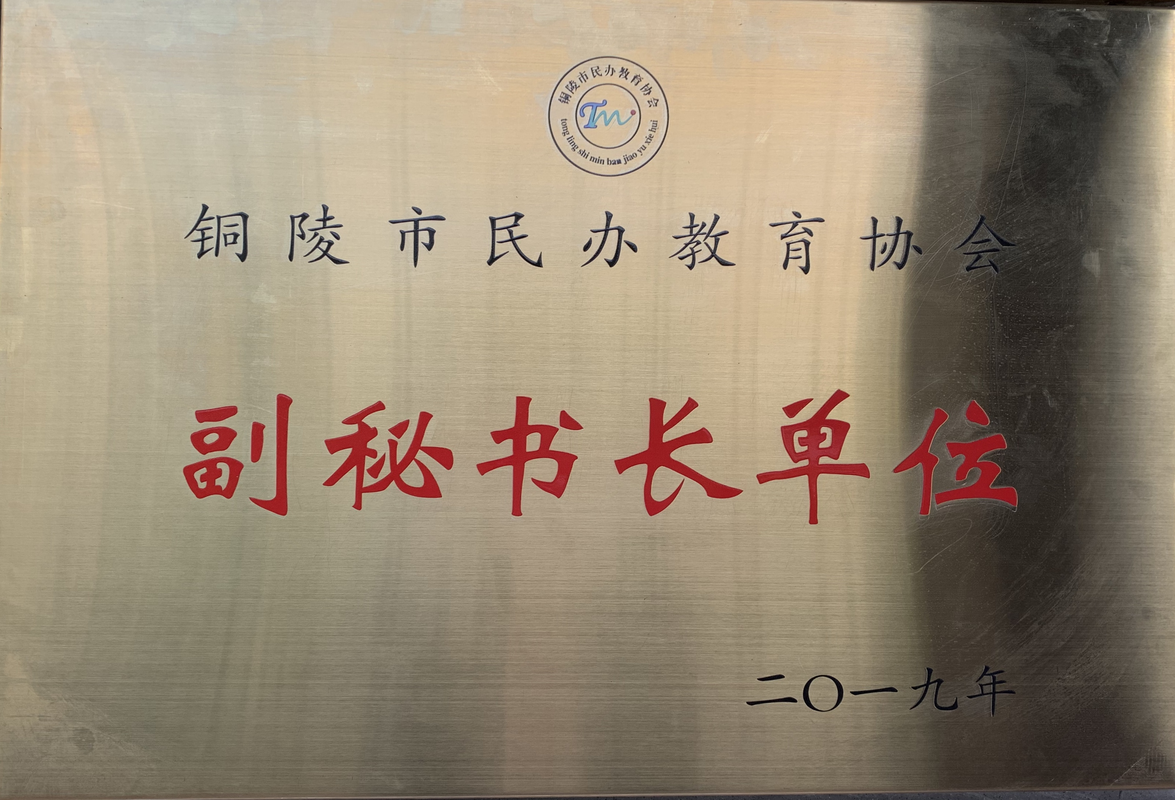 铜陵市民办教育协会
Tm
tong ling shi min ban jiao yu xie hui
铜陵市民办教育协会
副秘书长单位
二〇一九年